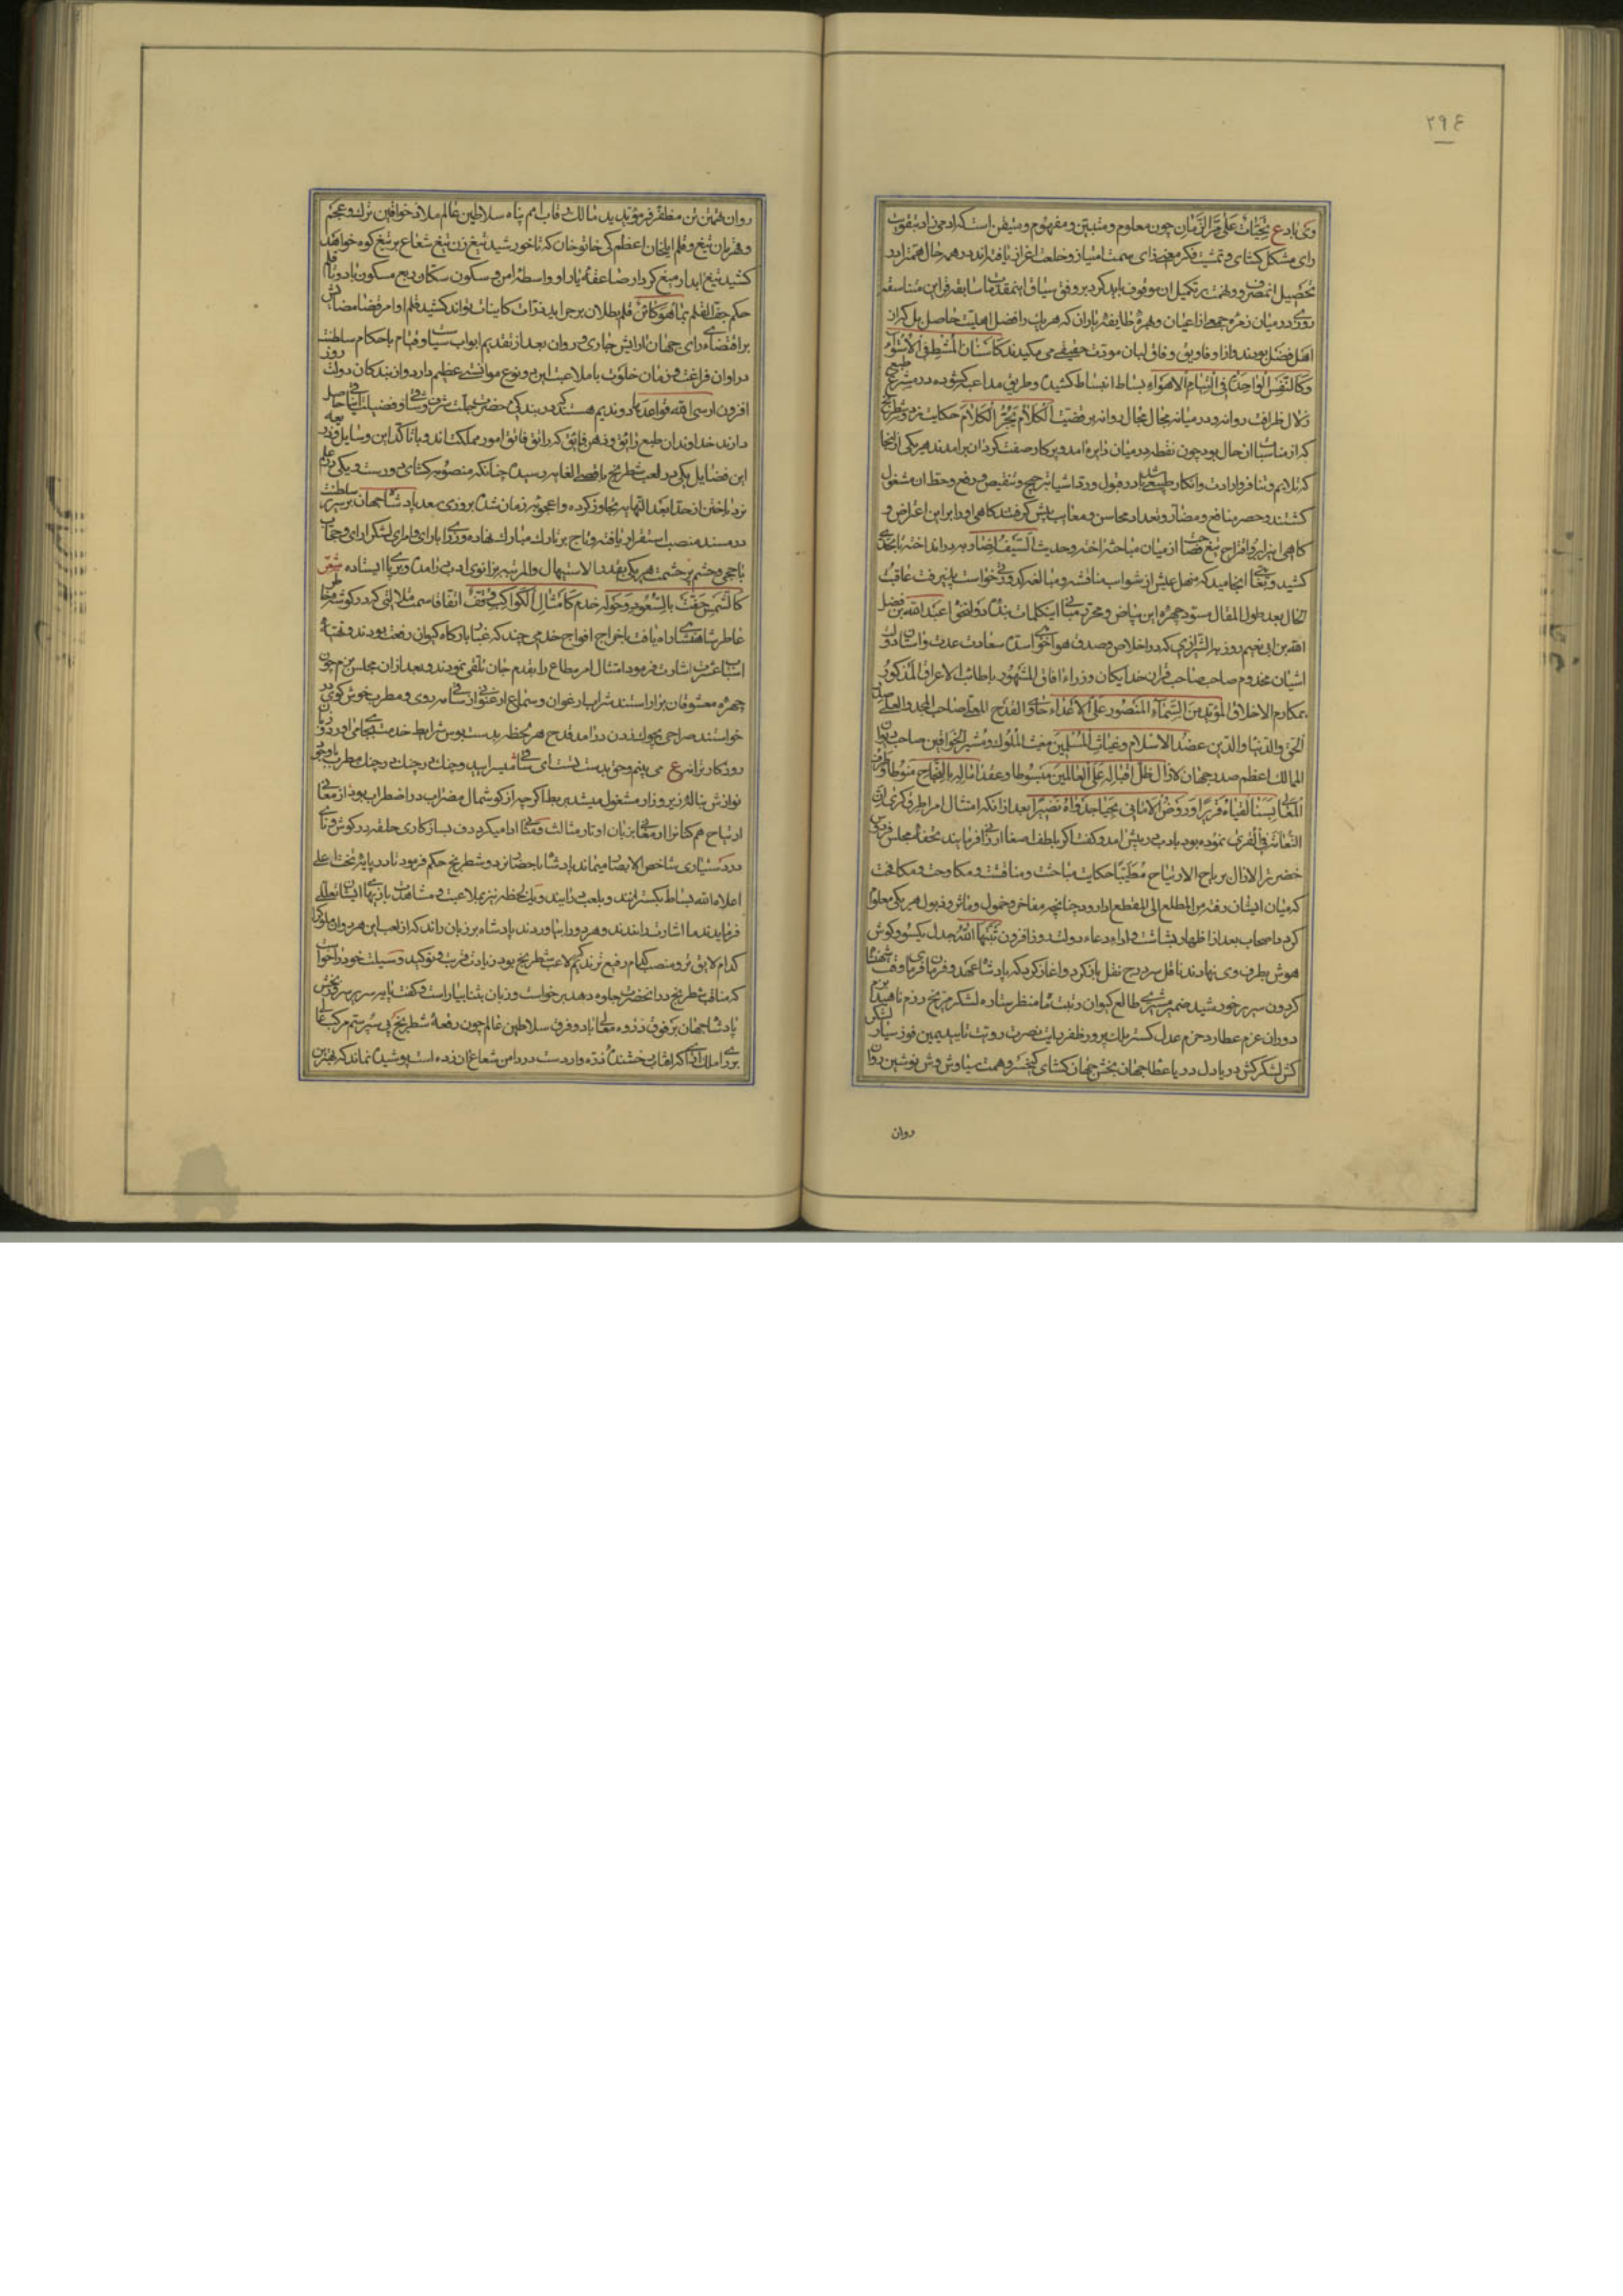 ٢٩٤
وکی نادع تحیات علی مر الزمان چون معلوم و متبین و مفهوم و متیقن است که ادمی زاد بتقویت
رای مشکل کشای و تمشیت فکر
تحصیل ان مصروف و نهمت بر تکمیل ان موقوف باید کرد بر وفق سیاق این مقدمات
روزی در میان زمره جمعی از اعیان و همزه طایفه یاران که هر یک را فضل اهلیت حاصل بل که از
اهل فضل بودند و از افاویق وفاق لبان مودت حقیقی می مکیدند کاسنان المشط فی الاستوا
وکالنفس الواحدة فی التیام الاهواء بساط انبساط کشیده و طریق مداعبه کشوده در مشرع طیبی
زلال ظرافت روانه و در میانه مجال محال دوانه بر قضیت الکلام یجر الکلام حکایت نرد و شطرنج
که از مناسبات ان حال بود چون نقطه در میان دایره امد و پرکار صفت کردان برامدند هر یکی از انجا
که تلایم و تنافر و ارادت و انکار طبیعت باشد در قبول و رد اشیا بترجیح و تنقیص و رفع و حط ان مشغول
کشتند و حصر منافع و مضار و تعداد محاسن و معایب پیش کرفتند کاهی اورا بر این اعتراض و
کاهی این را بر او اقتراح تیغ فصاحت از میان مباحثه اخته و حدیث السیف
کشید و بجائی انجامید که منهل عیش از شوایب مناقشه و مبالغه کدورتی خواست پذیرفت عاقبة
الحال بعد طول المقال مسود چهره این بیاض و محرر مبانی این کلمات بنده دولتخواه عبد الله بن فضل
الله بن ابی نعیم روز به الشیرازی که در اخلاص و صدق هواخواهی استان سعادت عدت و اشیان دولت
اشیان مخدوم صاحب صاحب قران خدایکان وزراء افاق المشهود باطائب الاعراق المذکور
بمکارم الاخلاق المؤید من السماء المنصور علی الاعداء حاوی القدح المعلی صاحب المجد و العلی
الحق و الدنیا و الدین عضد الاسلام و غیاث المسلمین مغیث الملوک و مشیر الخواقین صاحب دیوان
الممالک اعظم صدر جهان لا زال ظل اقباله علی العالمین مبسوطا و عقد اماله بالنجاح منوطا و
المعالی بسنا لقیاه قریرا و روض الامانی بحیا جدواه نضیرا بعد از انکه امتثال امر اطرق کری ان
النعامة فی القری نموده بود بادب در پیش امد و کفت اکر بالطف اصغا ارزانی فرمایند تحفه مجلس فردوس
خضرت را لا زال بریاح الارتیاح مطیبا حکایت مباحثت و مناقشت و مکاوحت و مکافحت
که میان ایشان رفته من المطلع الی المقطع ادا رود چنانچه مفاخر و خمول و ماثر و قبول هر یکی معلوم
کردد اصحاب بعد از اظهار بشاشت و اداء دعاء دولت روز افزون ثبتها الله جدل یکسو و کوش
هوش بطرف وی نهادند ناقل سر درج نقل باز کرد و اغاز کرد که پادشاه عهد و فرمان فرمای وقت شهنشاه
کردون سریر خورشید ضمیر مشتری طالع کیوان رتبت ماه منظر ستاره لشکر مریخ رزم ناهید بزم
دوران عزم عطارد حزم عدل کستر ملک پرور ظفر رایت نصرت رویت تایید یمین فوز یسار لشکر
کش لشکرکش دریا دل دریا عطا جهان بخش جهان کشای کیخسرو همت سیاوش وش نوشین روان
روان
روان تهمتن تن مظفر فر مؤید ید مالک رقاب امم پناه سلاطین عالم ملاذ خواقین ترک و عجم
و قهرمان تیغ و قلم ایلخان اعظم کی خاتو خان که تا خورشید تیغ زن تیغ شعاع بر تیغ کوه خواهد
کشید تیغ ابدار میغ کردار صاعقه بار او واسطه امن و سکون سکان ربع مسکون باد و تا قلم
حکم جف القلم بما هو کائن قلم بطلان بر جراید ذرات کاینات تواند کشید قلم اوامر قضا مضائش
بر اقتضاء رای جهان ارایش جاری و روان بعد از تقدیم ابواب سیاست و قیام باحکام سلطنت
در اوان فراغت و زمان خلوت با ملاعبت این دو نوع موانستی عظیم دارد و از بندکان دولت روز
افزون ارسی الله قواعدها دو ندیم هستند که در بندکی حضرت جهت شرف وشاقی و فضیلت ایناقی حاصل
دارند خداوندان طبع رایق و ذهن فایق که راتق فاتق امور مملکت اند و با تاکد این وسایل و ذریعه
این فضایل یکی در لعب شطرنج باقصی الغایه رسیده چنانکه منصوبه کشای دورست و یکی در علم
نرد باختن از حد ابعد النهایه تجاوز کرده و اعجوبه زمان شده روزی بعد پادشاه جهان بر سریر سلطنت
در مسند منصب استقرار یافته و تاج بر تارک مبارک نهاده وزرا با رای و امرای لشکر ارای و حجاب
با حجی و حشم پر حشمت هر یکی بقدر الاستیهال و المرتبه بزانوی ادب درامده و بر پا ایستاده شعر
کالشمس حفت بالسعود و حوله خدم کامثال الکواکب وقف اتفاقا سمت ملالتی کرد در کوشه
خاطر شاهنشاه راه یافت باخراج افواج خدمی چند که غبار بارکاه کیوان رفعت بودند و تهیه
اسباب عشرت اشارت فرمود امتثال امر مطاع را بقدم جان تلقی نمودند و بعد از ان مجلس بزم چون
چهره معشوقان بیاراستند شراب ارغوان و سماع ارغنون از ساقی سمن روی و مطرب خوش کوی در
خواستند صراحی بچوک زدن درامد قدح هر لحظه بدست بوس شرایط خدمت بجای می اورد و زبان
روزکار ترانه ع می بینم و حق بدست تست ای ساقی میسرایید و چنک در چنک و چنک مطرب با وجود
نوازش بناله زیر و زار مشغول میشد بربط اکر چه از کوشمال مضراب در اضطراب بود از معانی
ارتیاح هم کنانرا بزبان اوتار مثالث و مثانی ادا میکرد دف بساز کاری حلقه در کوش و نای
در دستیاری شاخص الابصار میماند پادشاه باحضار نرد و شطرنج حکم فرمود تا در پایه تخت اعلی
اعلاه الله بساط بکسترانند و بلعب درایند و یک لحظه نیز بملاعبت و مشاهدت بازیها ایشان تعللی
فرمایند ندما اشارت را ندند و هر دو را بیاوردند پادشاه بر زبان راند که از لعب این هر دو ان ملوک را
کدام لایق تر و منصب کدام رفیع تر ندیم لاعب شطرنج بود زیادت قربت و توکید وسیلت خود را خواست
که مناقب شطرنج در ان حضرت جلوه دهد برخواست و زبان بثنا بیاراست و کفت پایه سریر سروربخش
پادشاه جهان بر فوق ذروه معالی باد و فرق سلاطین عالم چون رقعه شطرنج پی سپر سم مرکب عالی
برای املک ارای که افتاب رخشنده ذره وار دست در دامن شعاع ان زده است پوشیده نماند که بهترین